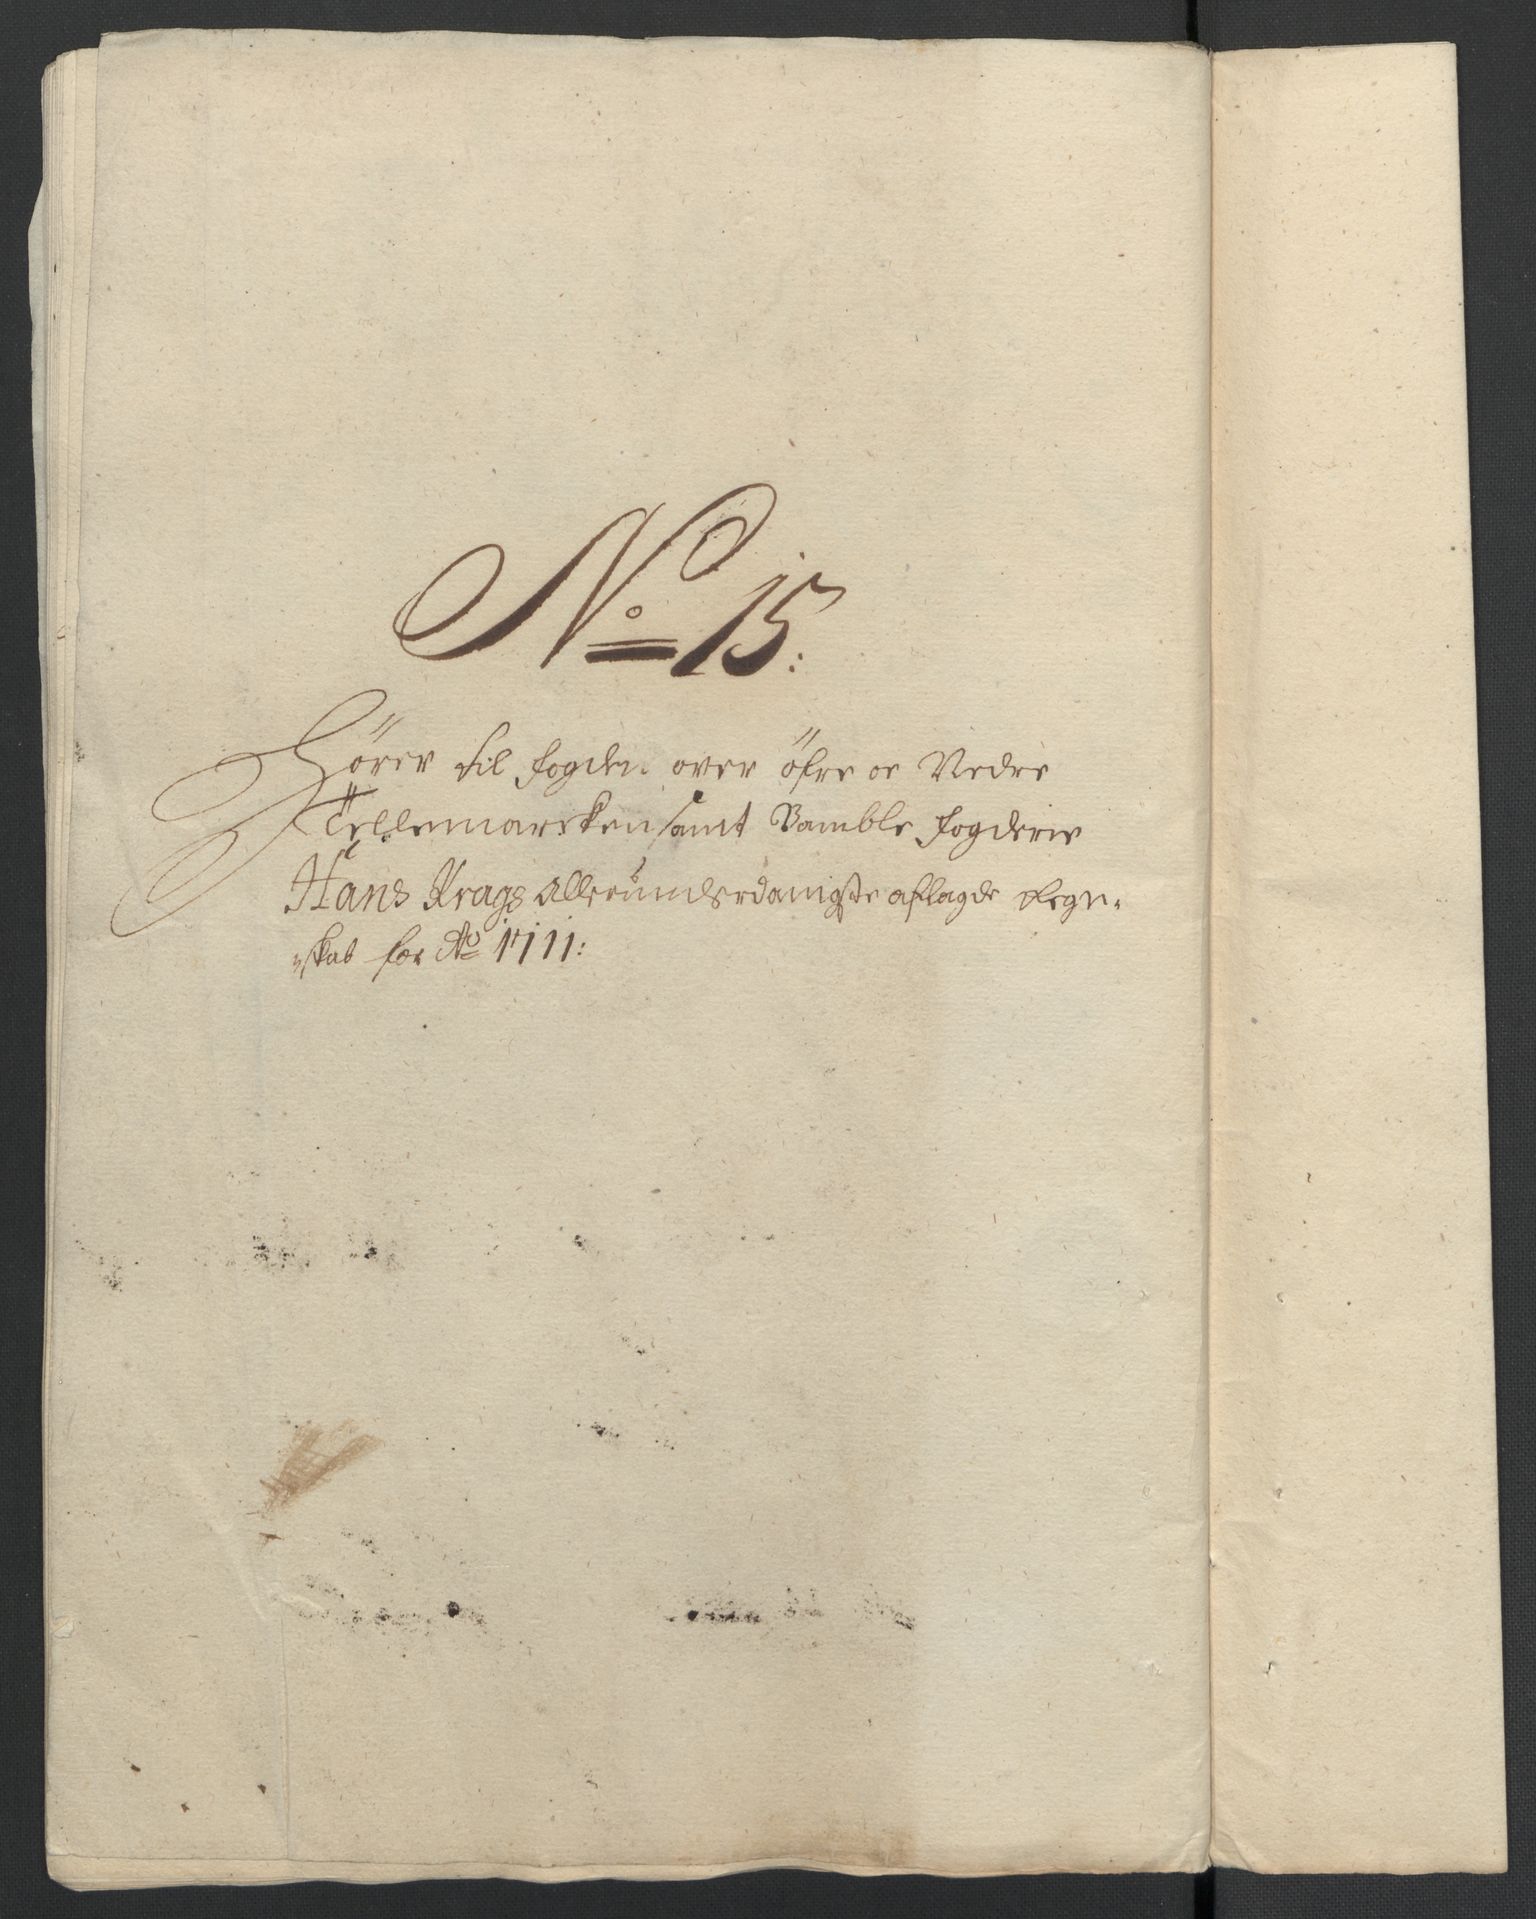 No 15:
Hörer til fogden over öfre oc Nedre
Tellemarcken samt Bamble fogderie
Hans Krags allerunderdanigste aflagde Regn-
skab for Ao 1711: